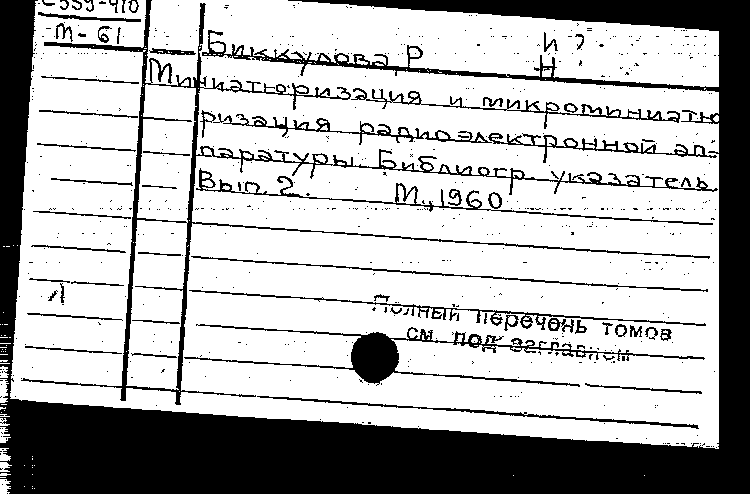 С559-410
М-61
Биккулова, Р И?
Н
Миниатюризация и микроминиатю
ризация радиоэлектронной ап-
паратуры. Библиогр указатель.
Вып. 2. М., 1960
Л
Полный перечень томов
см. под заглавием